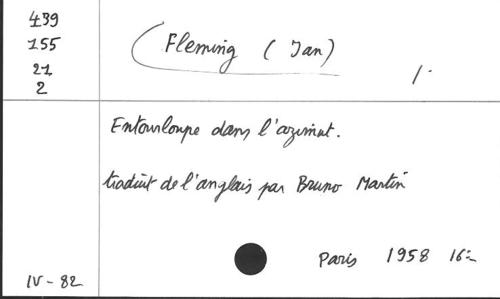 439
155
21
2
Fleming (Ian)
1.
Entourloupe dans l'azimut.
traduit de l'anglais par Bruno Martin
Paris 1958 16=
IV-82